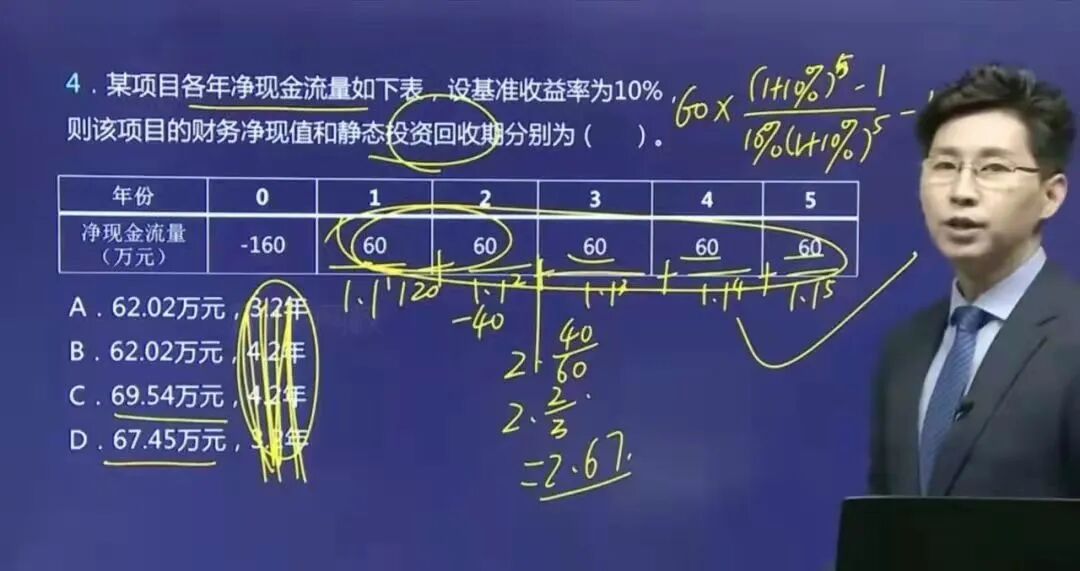 4．某项目各年净现金流量如下表，设基准收益率为10%，
则该项目的财务净现值和静态投资回收期分别为（　　）。
60×((1+10%)^5-1)/(10%(1+10%)^5)-
年份 0 1 2 3 4 5
净现金流量
（万元） -160 60 60 60 60 60
1.1^1 120 1.1^2 1.1^3 1.1^4 1.1^5
-40
A．62.02万元，3.2年
B．62.02万元，4.2年
C．69.54万元，4.2年
D．67.45万元，3.2年
2．40/60
2．2/3
=2.67